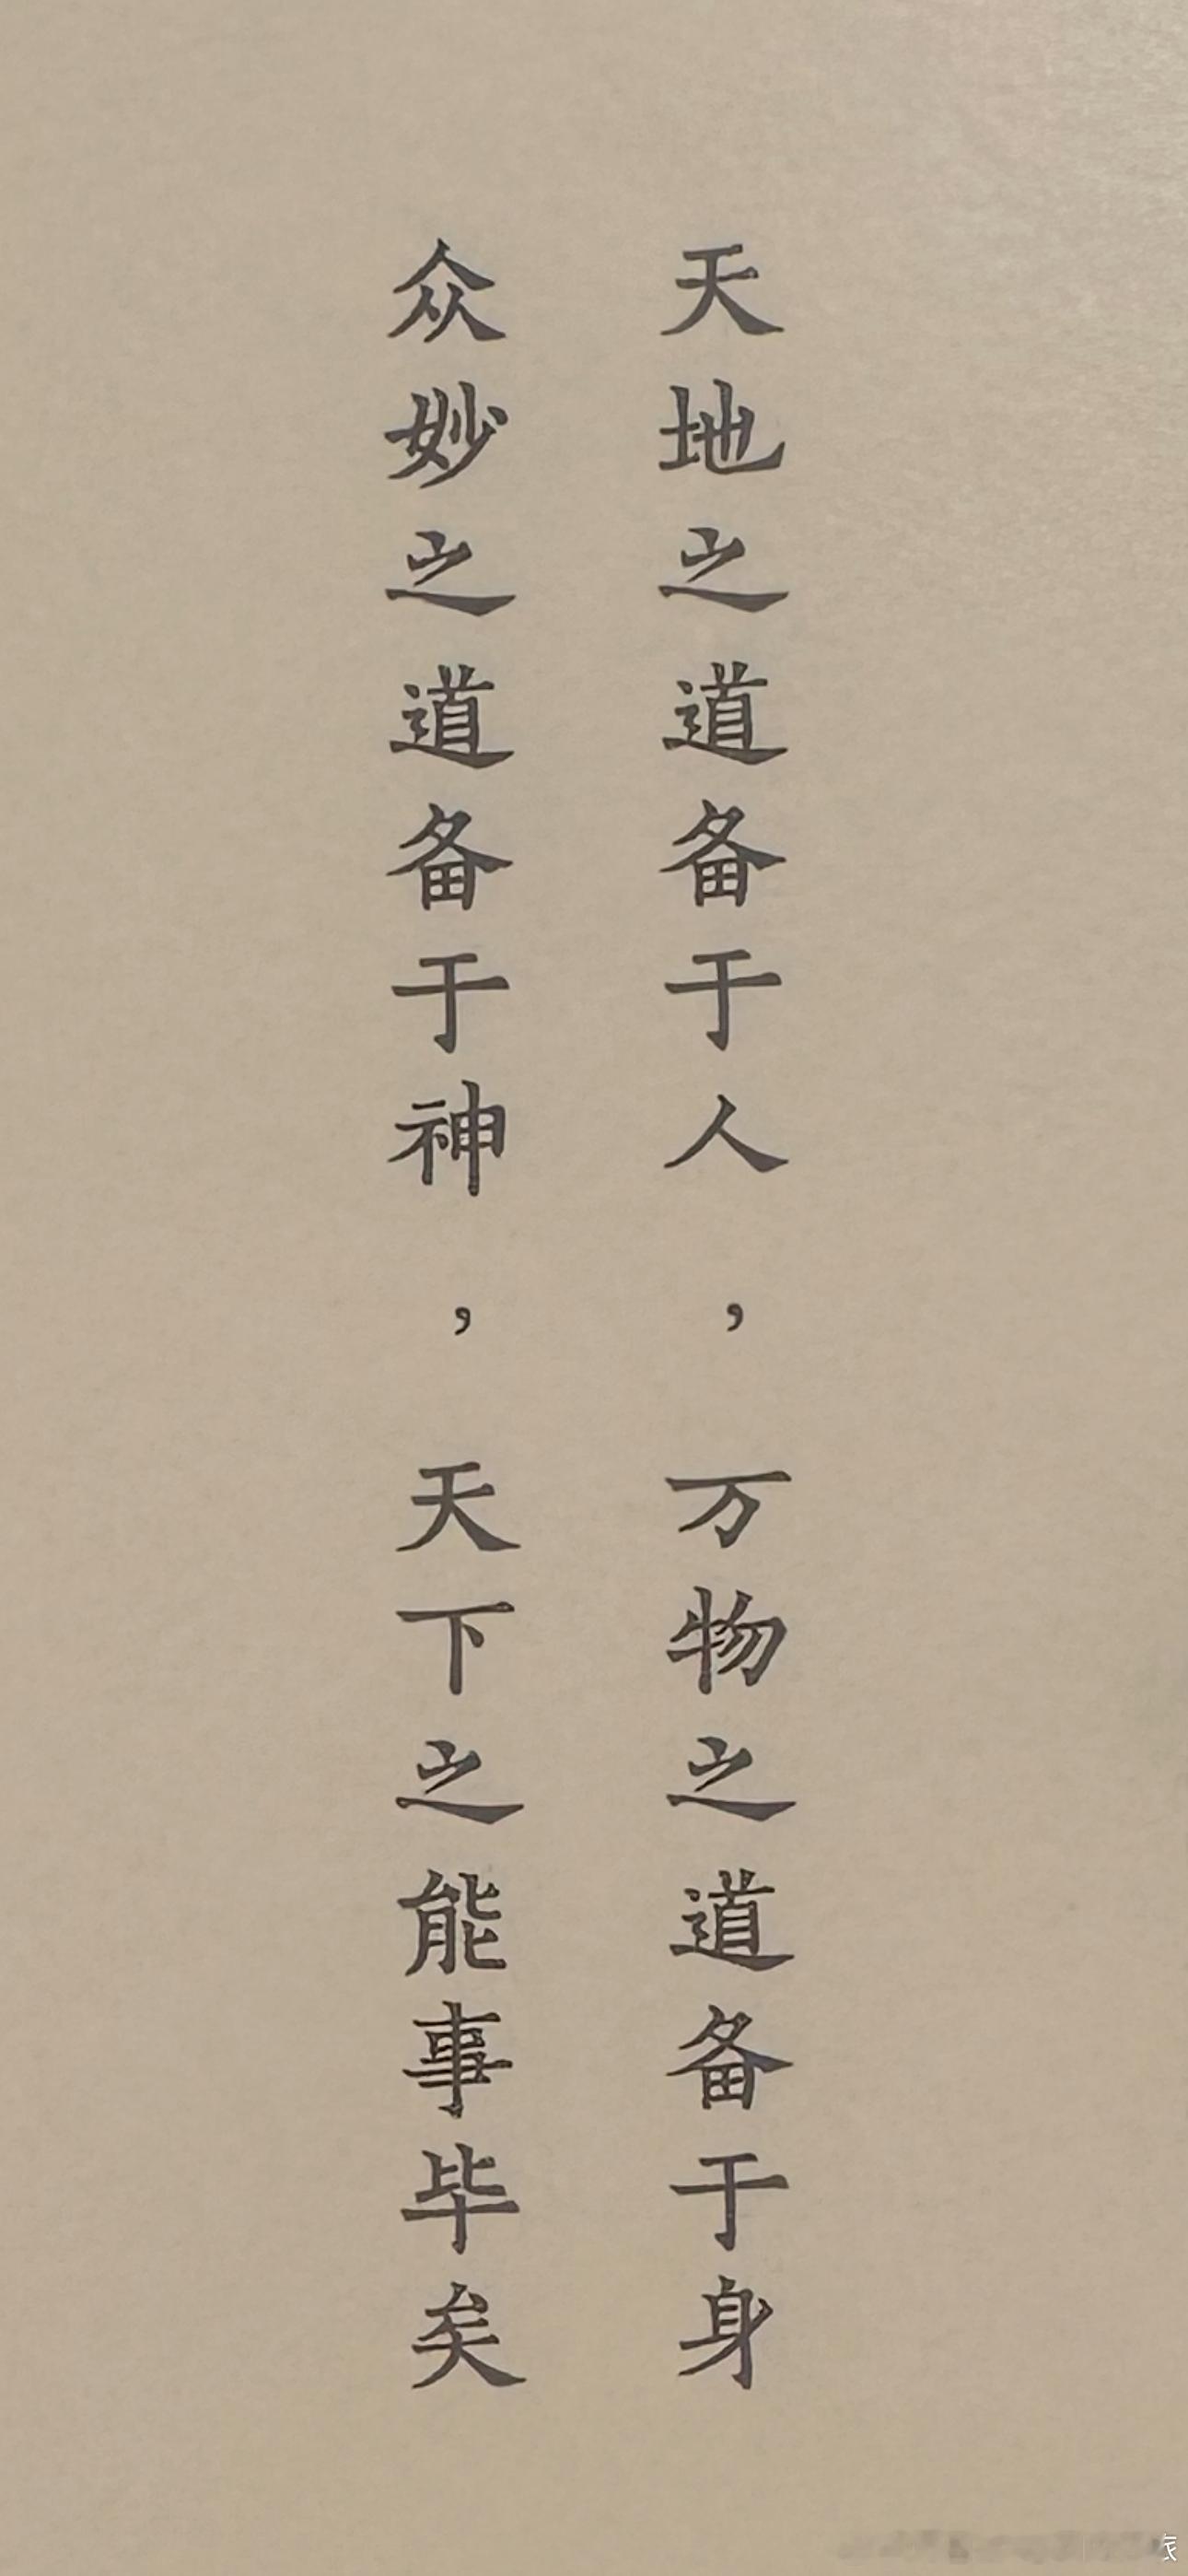 天地之道备于人，万物之道备于身
众妙之道备于神，天下之能事毕矣